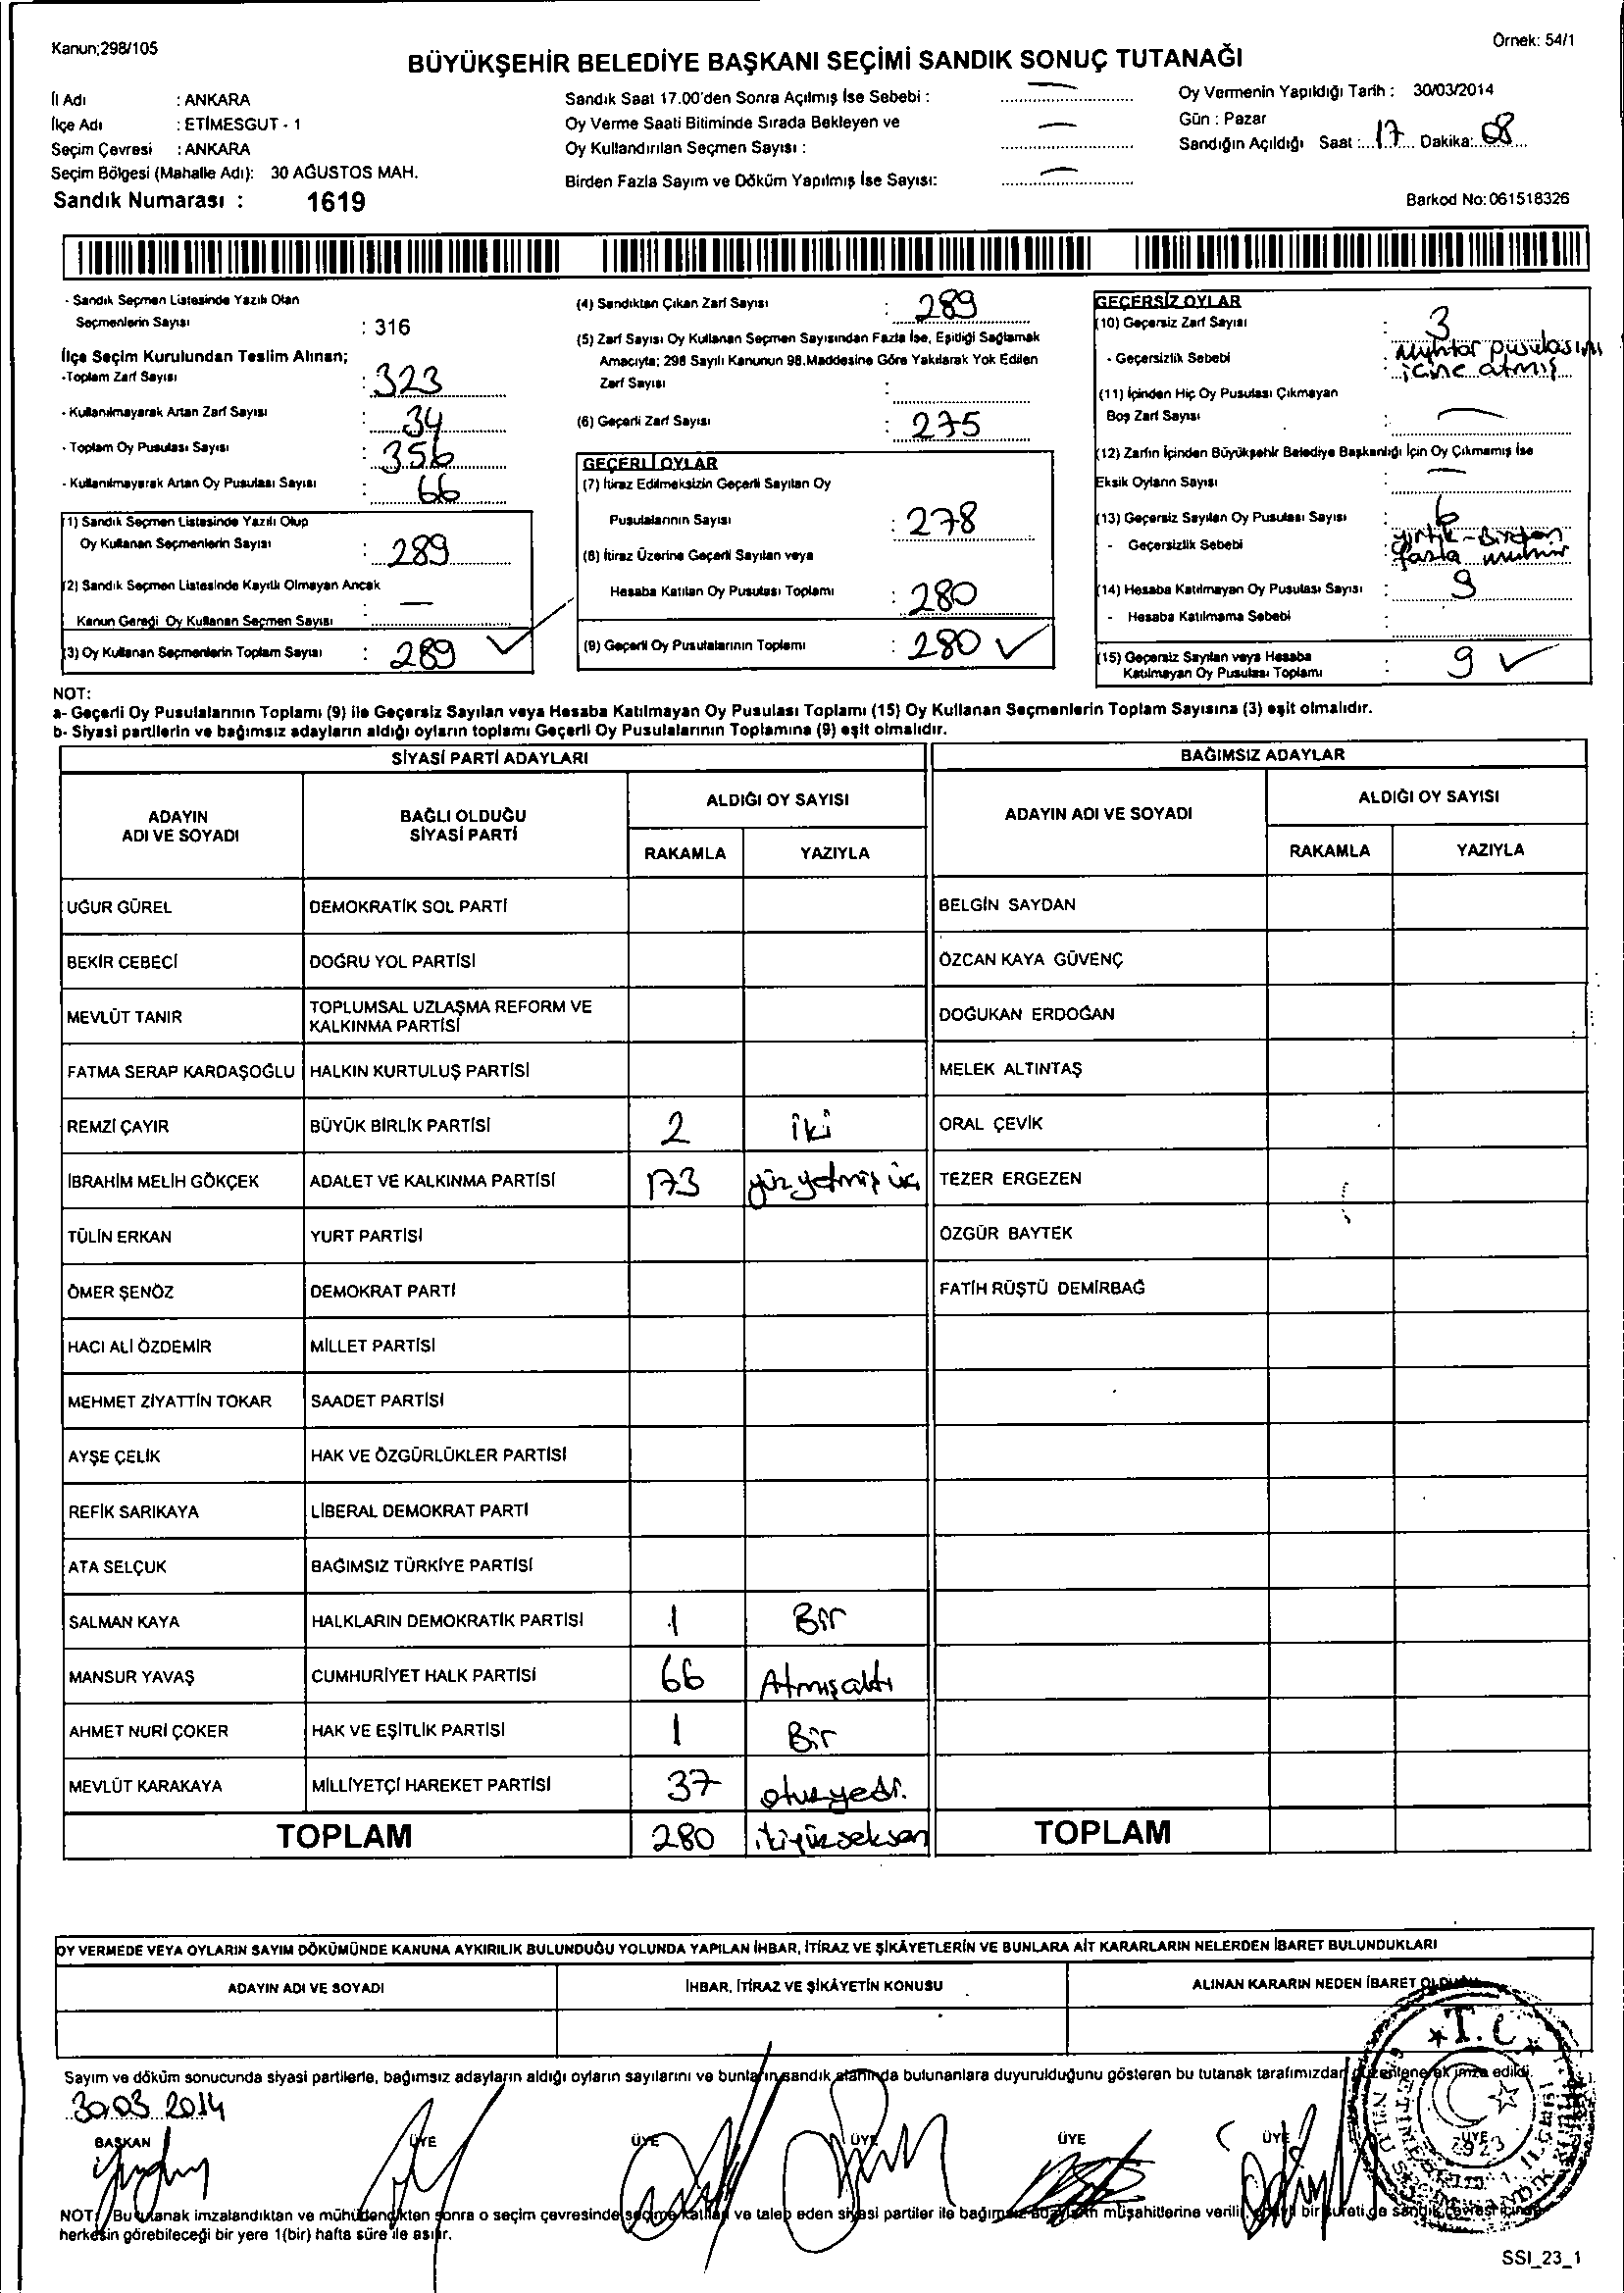 Kanun;298/105
Örnek: 54/1
BÜYÜKŞEHİR BELEDİYE BAŞKANI SEÇİMİ SANDIK SONUÇ TUTANAĞI
İl Adı : ANKARA
İlçe Adı : ETİMESGUT - 1
Seçim Çevresi : ANKARA
Seçim Bölgesi (Mahalle Adı): 30 AĞUSTOS MAH.
Sandık Numarası : 1619
Sandık Saat 17.00'den Sonra Açılmış İse Sebebi :
Oy Verme Saati Bitiminde Sırada Bekleyen ve
Oy Kullandırılan Seçmen Sayısı :
Birden Fazla Sayım ve Döküm Yapılmış İse Sayısı:
Oy Vermenin Yapıldığı Tarih : 30/03/2014
Gün : Pazar
Sandığın Açıldığı Saat : 17 Dakika: 08
Barkod No:061518326
- Sandık Seçmen Listesinde Yazılı Olan
Seçmenlerin Sayısı : 316
İlçe Seçim Kurulundan Teslim Alınan;
-Toplam Zarf Sayısı : 323
- Kullanılmayarak Artan Zarf Sayısı : 34
- Toplam Oy Pusulası Sayısı : 356
- Kullanılmayarak Artan Oy Pusulası Sayısı : 66
(1) Sandık Seçmen Listesinde Yazılı Olup
Oy Kullanan Seçmenlerin Sayısı : 289
(2) Sandık Seçmen Listesinde Kayıtlı Olmayan Ancak
Kanun Gereği Oy Kullanan Seçmen Sayısı : —
(3) Oy Kullanan Seçmenlerin Toplam Sayısı : 289
(4) Sandıktan Çıkan Zarf Sayısı : 289
(5) Zarf Sayısı Oy Kullanan Seçmen Sayısından Fazla İse, Eşitliği Sağlamak
Amacıyla; 298 Sayılı Kanunun 98.Maddesine Göre Yakılarak Yok Edilen
Zarf Sayısı :
(6) Geçerli Zarf Sayısı : 275
GEÇERLİ OYLAR
(7) İtiraz Edilmeksizin Geçerli Sayılan Oy
Pusulalarının Sayısı : 278
(8) İtiraz Üzerine Geçerli Sayılan veya
Hesaba Katılan Oy Pusulası Toplamı : 280
(9) Geçerli Oy Pusulalarının Toplamı : 280
GEÇERSİZ OYLAR
(10) Geçersiz Zarf Sayısı : 3
- Geçersizlik Sebebi : Muhtar pusulasını
içine atmış
(11) İçinden Hiç Oy Pusulası Çıkmayan
Boş Zarf Sayısı : —
(12) Zarfın İçinden Büyükşehir Belediye Başkanlığı İçin Oy Çıkmamış İse
Eksik Oyların Sayısı —
(13) Geçersiz Sayılan Oy Pusulası Sayısı : 6
- Geçersizlik Sebebi : yırtık - Birden
fazla mühür
(14) Hesaba Katılmayan Oy Pusulası Sayısı : 9
- Hesaba Katılmama Sebebi :
(15) Geçersiz Sayılan veya Hesaba
Katılmayan Oy Pusulası Toplamı : 9
NOT:
a- Geçerli Oy Pusulalarının Toplamı (9) ile Geçersiz Sayılan veya Hesaba Katılmayan Oy Pusulası Toplamı (15) Oy Kullanan Seçmenlerin Toplam Sayısına (3) eşit olmalıdır.
b- Siyasi partilerin ve bağımsız adayların aldığı oyların toplamı Geçerli Oy Pusulalarının Toplamına (9) eşit olmalıdır.
SİYASİ PARTİ ADAYLARI
BAĞIMSIZ ADAYLAR
ADAYIN
ADI VE SOYADI
BAĞLI OLDUĞU
SİYASİ PARTİ
ALDIĞI OY SAYISI
RAKAMLA YAZIYLA
ADAYIN ADI VE SOYADI
ALDIĞI OY SAYISI
RAKAMLA YAZIYLA
UĞUR GÜREL DEMOKRATİK SOL PARTİ BELGİN SAYDAN
BEKİR CEBECİ DOĞRU YOL PARTİSİ ÖZCAN KAYA GÜVENÇ
MEVLÜT TANIR TOPLUMSAL UZLAŞMA REFORM VE
KALKINMA PARTİSİ DOĞUKAN ERDOĞAN
FATMA SERAP KARDAŞOĞLU HALKIN KURTULUŞ PARTİSİ MELEK ALTINTAŞ
REMZİ ÇAYIR BÜYÜK BİRLİK PARTİSİ 2 iki ORAL ÇEVİK
İBRAHİM MELİH GÖKÇEK ADALET VE KALKINMA PARTİSİ 173 yüz yetmiş üç TEZER ERGEZEN
TÜLİN ERKAN YURT PARTİSİ ÖZGÜR BAYTEK
ÖMER ŞENÖZ DEMOKRAT PARTİ FATİH RÜŞTÜ DEMİRBAĞ
HACI ALİ ÖZDEMİR MİLLET PARTİSİ
MEHMET ZİYATTİN TOKAR SAADET PARTİSİ
AYŞE ÇELİK HAK VE ÖZGÜRLÜKLER PARTİSİ
REFİK SARIKAYA LİBERAL DEMOKRAT PARTİ
ATA SELÇUK BAĞIMSIZ TÜRKİYE PARTİSİ
SALMAN KAYA HALKLARIN DEMOKRATİK PARTİSİ 1 Bir
MANSUR YAVAŞ CUMHURİYET HALK PARTİSİ 66 Atmışaltı
AHMET NURİ ÇOKER HAK VE EŞİTLİK PARTİSİ 1 Bir
MEVLÜT KARAKAYA MİLLİYETÇİ HAREKET PARTİSİ 37 otuzyedi.
TOPLAM 280 ikiyüzseksen TOPLAM
OY VERMEDE VEYA OYLARIN SAYIM DÖKÜMÜNDE KANUNA AYKIRILIK BULUNDUĞU YOLUNDA YAPILAN İHBAR, İTİRAZ VE ŞİKÂYETLERİN VE BUNLARA AİT KARARLARIN NELERDEN İBARET BULUNDUKLARI
ADAYIN ADI VE SOYADI İHBAR, İTİRAZ VE ŞİKÂYETİN KONUSU ALINAN KARARIN NEDEN İBARET OLDUĞU
Sayım ve döküm sonucunda siyasi partilerle, bağımsız adayların aldığı oyların sayılarını ve bunların sandık alanında bulunanlara duyurulduğunu gösteren bu tutanak tarafımızdan düzenlenerek imza edildi.
30.03.2014
BAŞKAN ÜYE ÜYE ÜYE ÜYE ÜYE ÜYE
T.C.
1923
NOT: Bu tutanak imzalandıktan ve mühürlendikten sonra o seçim çevresinde seçime katılan ve talep eden siyasi partiler ile bağımsız adayların müşahitlerine verilir bir sureti de sandık çevresi içinde
herkesin görebileceği bir yere 1(bir) hafta süre ile asılır.
SSI_23_1